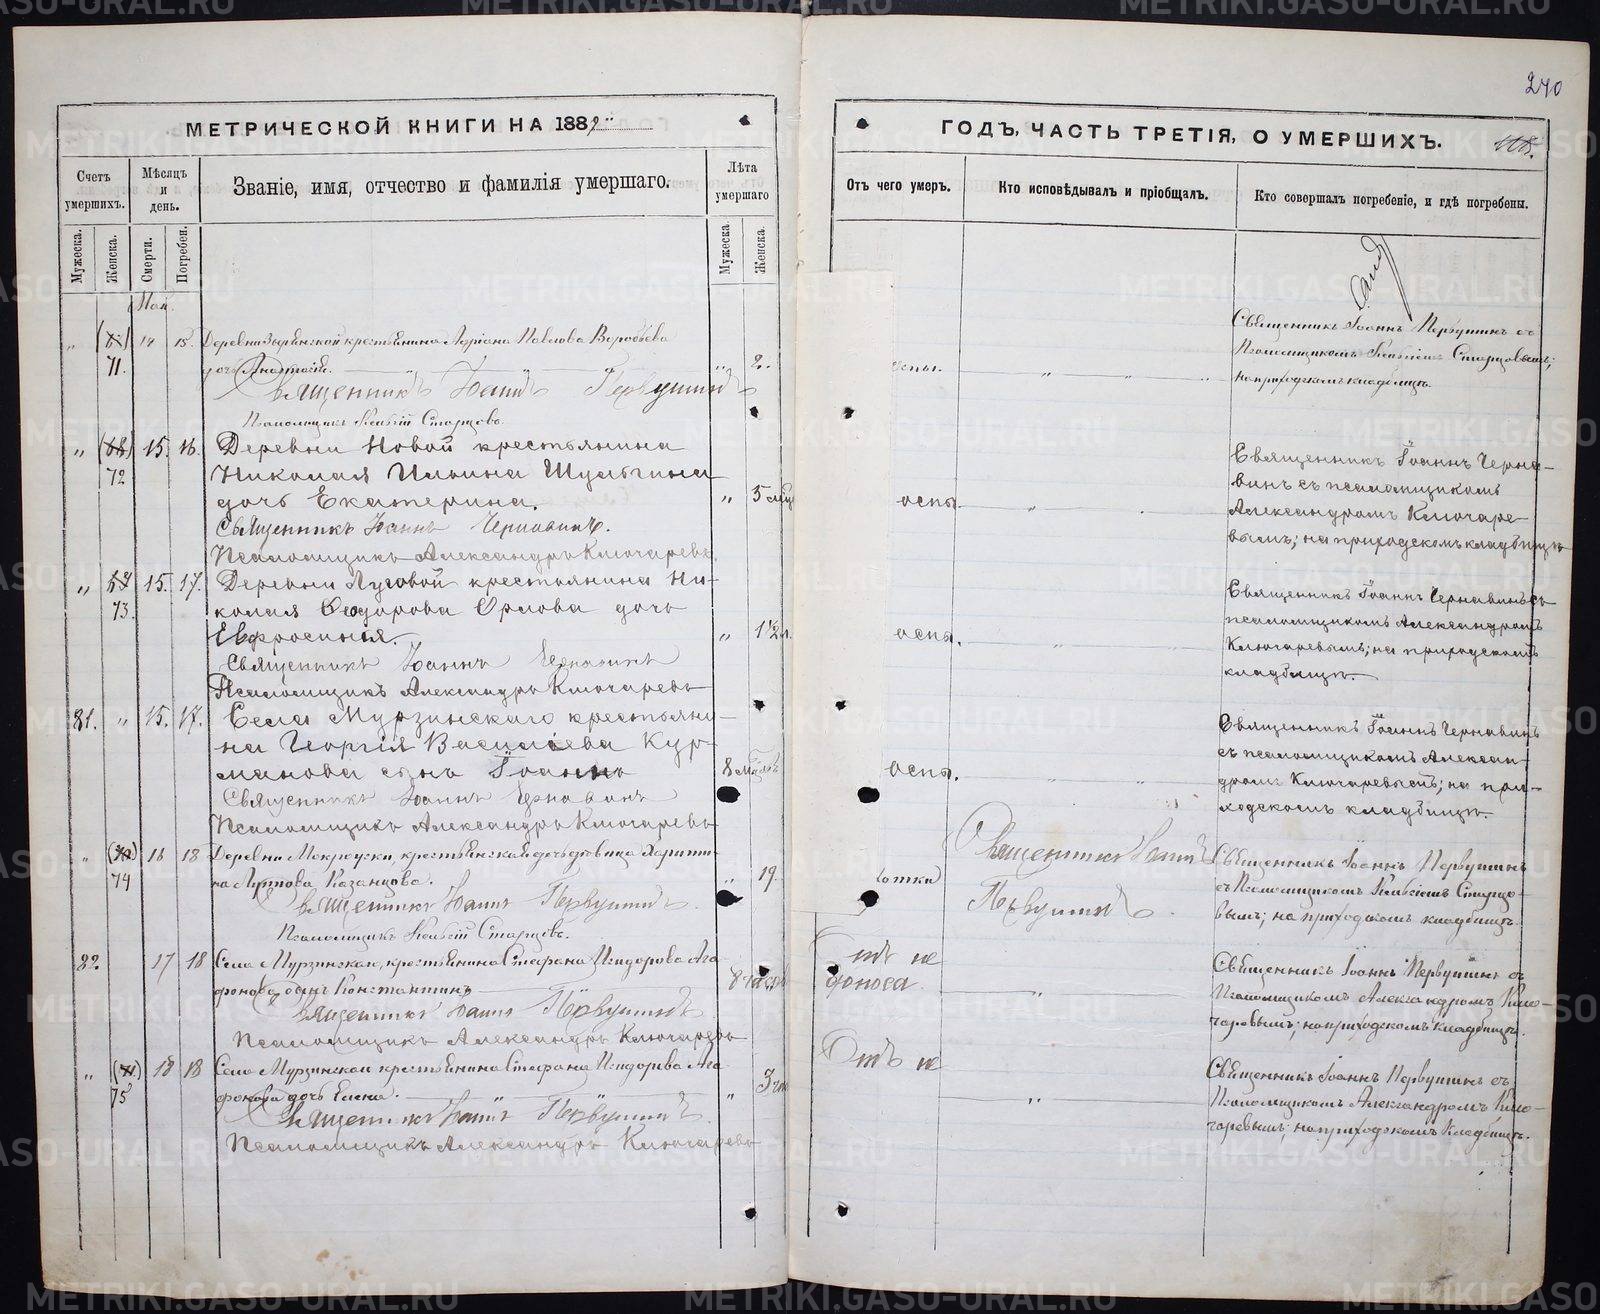 240
МЕТРИЧЕСКОЙ КНИГИ НА 1882
Счетъ умершихъ.
Мѣсяцъ и день.
Званіе, имя, отчество и фамилія умершаго.
Лѣта умершаго
Мужеска.
Женска.
Смерти.
Погребен.
Мужеска.
Женска.
ГОДЪ, ЧАСТЬ ТРЕТІЯ, О УМЕРШИХЪ.
Отъ чего умеръ.
Кто исповѣдывалъ и пріобщалъ.
Кто совершалъ погребеніе, и гдѣ погребены.
Мая
71. 14 15. Деревни Зырянской крестьянина Адріана Павлова Воробьева
дочь Анастасія. 2.
Священникъ Іоаннъ Первушинъ
Псаломщикъ Старцовъ.
Священникъ Іоаннъ Первушинъ съ
Псаломщикомъ Старцовымъ;
на приходскомъ кладбищѣ.
72 15. 16. Деревни Новой крестьянина
Николая Ильина Шульгина
дочь Екатерина. 5 мѣс
оспы
Священникъ Іоаннъ Чернавинъ.
Псаломщикъ Александръ Ключаревъ.
Священникъ Іоаннъ Черна-
винъ съ псаломщикомъ
Александромъ Ключаре-
вымъ; на приходскомъ кладбищѣ
73. 15. 17. Деревни Луговой крестьянина Ни-
колая Ѳеодорова Орлова дочь
Евфросинія. 1½ л.
оспы.
Священникъ Іоаннъ Чернавинъ
Псаломщикъ Александръ Ключаревъ
Священникъ Іоаннъ Чернавинъ съ
псаломщикомъ Александромъ
Ключаревымъ; на приходскомъ
кладбищѣ.
81. 15. 17. Села Мурзинскаго крестьяни-
на Георгія Васильева Кур-
манова сынъ Іоаннъ
оспы.
Священникъ Іоаннъ Чернавинъ
Псаломщикъ Александръ Ключаревъ
Священникъ Іоаннъ Чернавинъ
съ псаломщикомъ Алексан-
дромъ Ключаревымъ; на при-
ходскомъ кладбищѣ.
74 16 18 Деревни крестьянская дочь дѣвица
Казанцова. 19.
отки
Священникъ Іоаннъ Первушинъ.
Псаломщикъ Старцовъ.
Священникъ Іоаннъ
Первушинъ.
Священникъ Іоаннъ Первушинъ
съ Псаломщикомъ Старцо-
вымъ; на приходскомъ кладбищѣ.
82. 17 18 Села Мурзинскаго, крестьянина Стефана Исидорова Ага-
фонова сынъ Константинъ
Отъ не
доноса
Священникъ Іоаннъ Первушинъ
Псаломщикъ Александръ Ключаревъ
Священникъ Іоаннъ Первушинъ съ
Псаломщикомъ Александромъ Клю-
чаревымъ; на приходскомъ кладбищѣ.
75 18 18 Села Мурзинскаго крестьянина Стефана Исидорова Ага-
фонова дочь Елена.
Отъ не
Священникъ Іоаннъ Первушинъ
Псаломщикъ Александръ Ключаревъ
Священникъ Іоаннъ Первушинъ съ
Псаломщикомъ Александромъ Клю-
чаревымъ; на приходскомъ кладбищѣ.
METRIKI.GASO-URAL.RU